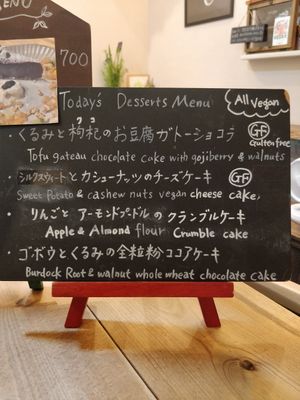 ENU
700
Today's Desserts Menu
All Vegan
・くるみと枸杞のお豆腐ガトーショコラ
クコ
GF
Gluten free
Tofu gateau chocolate cake with gojiberry & walnuts
・シルクスウィートとカシューナッツのチーズケーキ
GF
Sweet Potato & cashew nuts vegan cheese cake,
・りんごとアーモンドプードルのクランブルケーキ
Apple & Almond flour Crumble cake
・ゴボウとくるみの全粒粉ココアケーキ
Burdock Root & walnut whole wheat chocolate cake